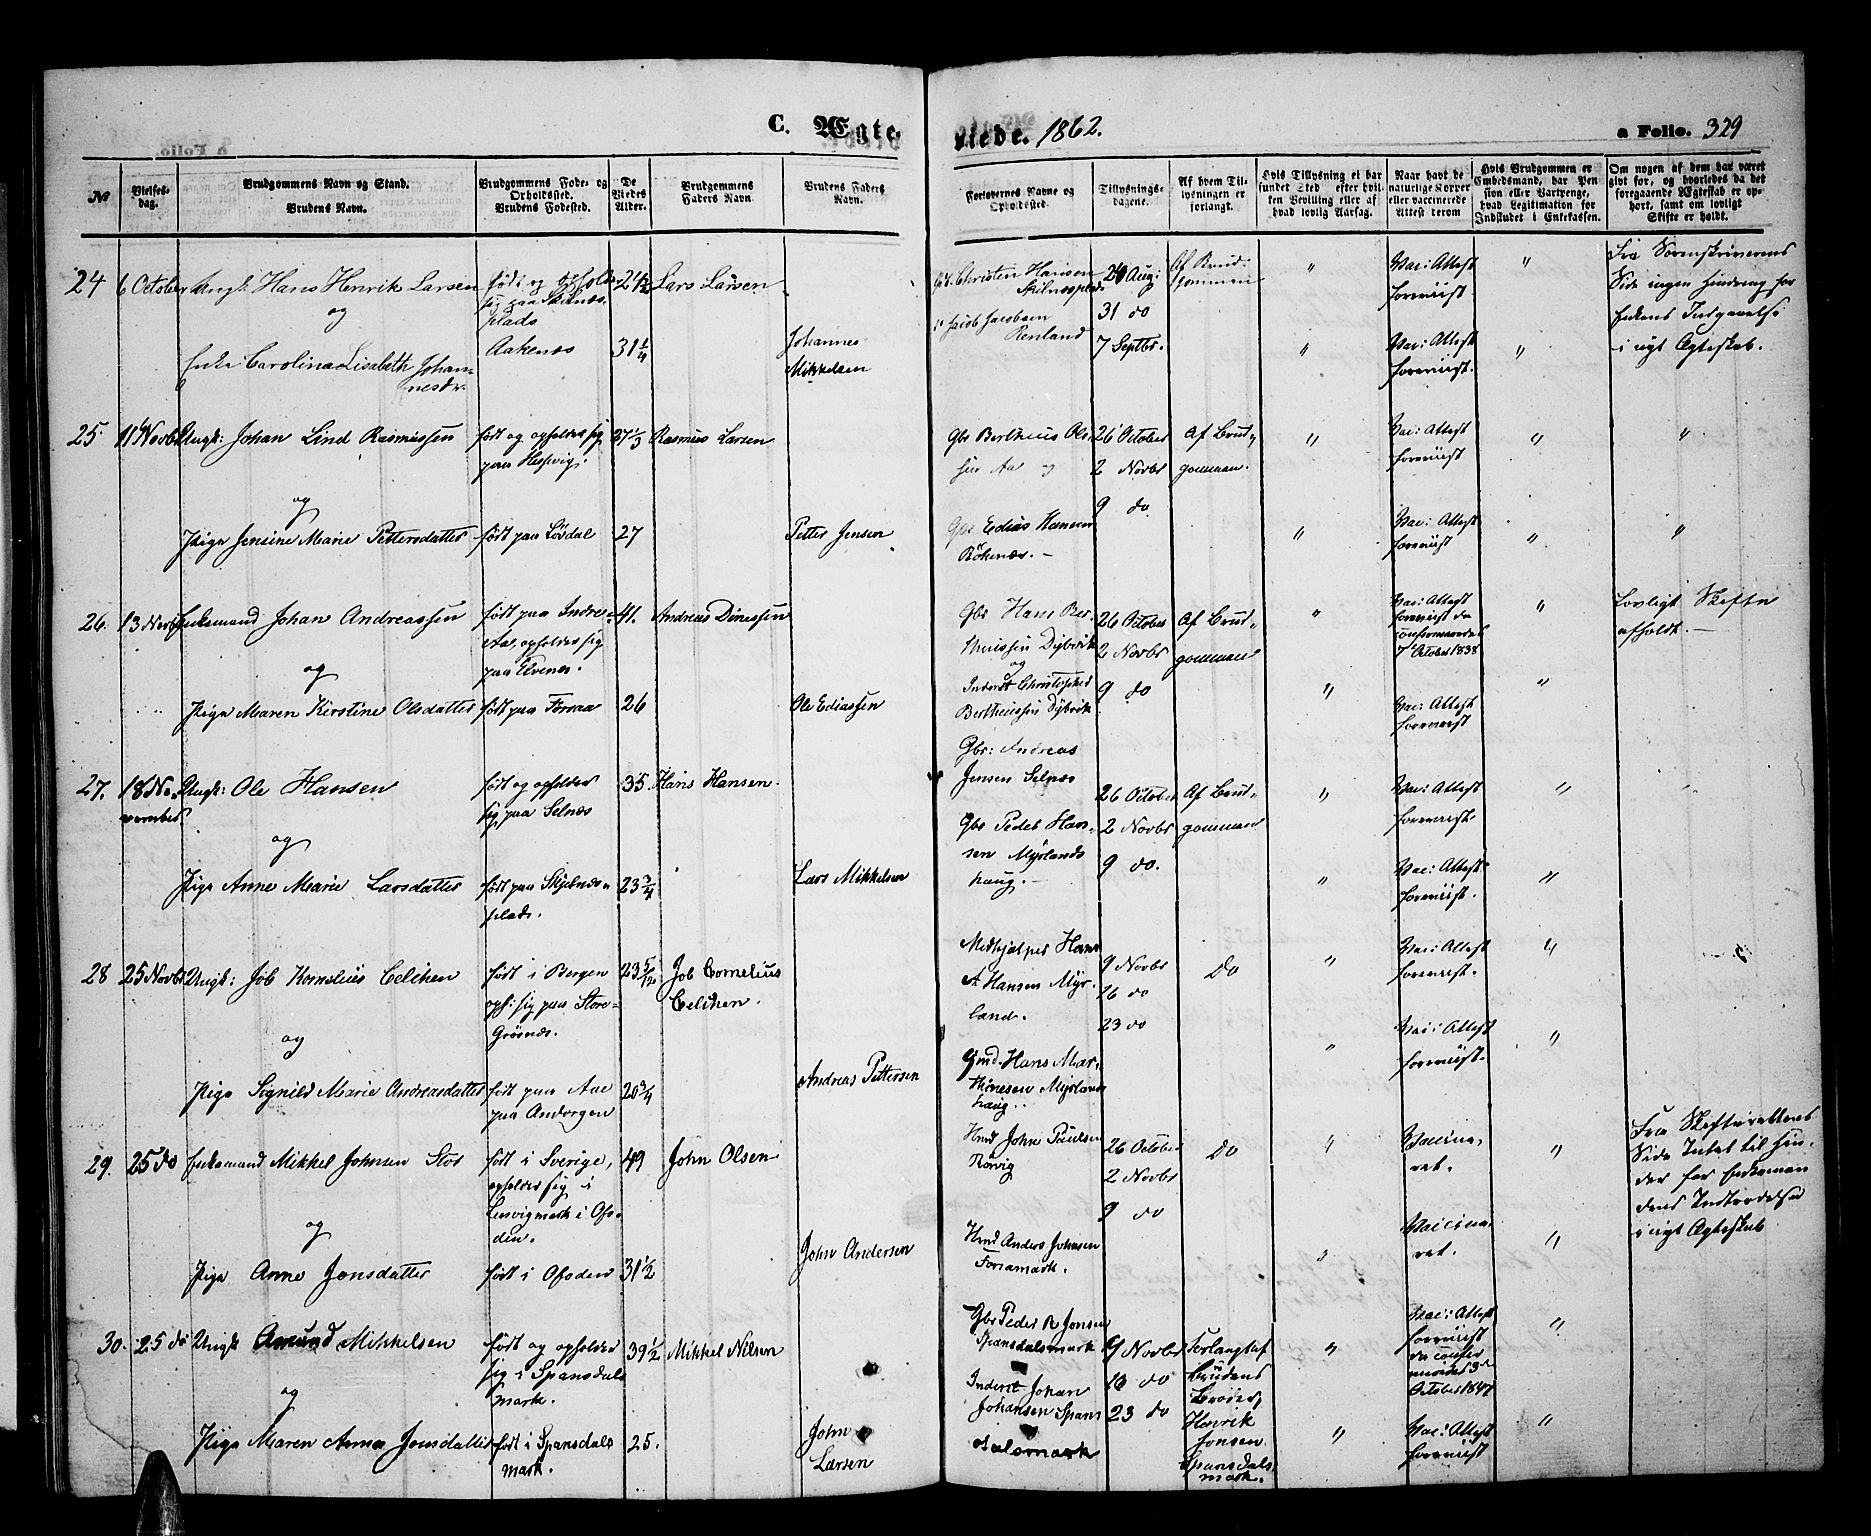 C. Ægte-
viede. 1862.
a Folio. 329
№
Vielses-
dag.
Brudgommens Navn og Stand.
Brudens Navn.
Brudgommens Føde- og
Opholdssted.
Brudens Fødested.
De
Viedes
Alder.
Brudgommens
Faders Navn.
Brudens Faders
Navn.
Forlovernes Navne og
Opholdssted.
Tillysnings-
dagene.
Af hvem Til-
lysningen er
forlangt.
Hvis Tillysning ei har
fundet Sted, efter hvil-
ken Bevilling eller af
hvad lovlig Aarsag.
Naar havt de
naturlige Kopper
eller vaccinerede
Attest derom
Hvis Brudgommen er
Embedsmand, har Pen
sion eller Vartpenge,
hvad Legitimation for
Indskudet i Enkekassen.
Om nogen af dem har været
gift før, og hvorledes da det
foregaaende Ægteskab er op-
hørt, samt om lovligt
Skifte er holdt.
24 6 October Ungk: Hans Henrik Larsen
og
Enke Carolina Lisabeth Johan-
nesdr.
født og opholder
sig paa Skilnæs
plads
Aakenæs
31 1/4
Lars Larsen
Johannes
Mikkelsen
Christen Hansen
Skilnesplads
Jacob Jacobsen
Renland
24 Aug:
31 do
7 Septbr.
Af Brud-
gommen
"
"
Vac: Attest
foreviist
Vac: Attest
foreviist.
"
"
Fra Sorenskriverens
Side ingen Hindring for
Enkens Indgaaelse
i nyt Ægteskab.
25. 11 Novbr Ungk: Johan Lind Rasmussen
og
Pige Jensine Marie Pettersdatter
født og opholder sig
paa Hesvig.
født paa Lövdal
37 1/3
27
Rasmus Larsen
Petter Jensen
Gbr Bertheus Ol-
sen Aae og
Gbr Edias Hansen
Bökenæs. -
26 October
2 Novbr
9 do
Af Brud-
gommen.
"
"
Vac: Attest
foreviist
Vac: Attest
foreviist
"
"
"
"
26. 13 Novbr Enkemand Johan Andreassen
og
Pige Maren Kirstine Olsdatter
født paa Indre-
Aae, opholder sig
paa Elvenes.
født paa Forraa
41.
26
Andreas Dinessen
Ole Ediassen
Gbr Hans Ber-
theussen Dybvik
og
Inderst Christopher
Bertheussen Dybvik
26 October
2 Novbr
9 do
Af Brud-
gommen
"
"
Vac: Attest
foreviist da
confirmeredes
7 October 1838
Vac: Attest
foreviist
"
"
Lovligt Skifte
afholdt. -
27. 18 No-
vember
Ungk: Ole Hansen
og
Pige Anne Marie Larsdatter
født og opholder
sig paa Selnæs
født paa Skjelnæs-
plads.
35.
23 3/4
Hans Hansen.
Lars Mikkelsen
Gbr: Andreas
Jensen Selnæs
Gbr Peder Han-
sen Myrlands
haug. -
26 October
2 Novbr
9 do.
Af Brud-
gommen
"
"
Vac: Attest
foreviist.
Vac: Attest
foreviist.
"
"
28 25 Novbr Ungk: Job Kornelius Celiken
og
Pige Signild Marie Andreasdatter
født i Bergen
oph: sig paa Store-
Grovnæs.
født paa Aae
paa Andorgen
23 5/12
20 3/4
Job Cornelius
Celiken.
Andreas Pettersen
Medhjelper Hans
A Hansen Myr-
land.
Gmd. Hans Mar-
thinesen Myrlands
haug..
9 Novbr
16 do
23 do
Do
"
"
Vac: Attest
foreviist.
Vac: Attest
foreviist.
"
"
29. 25 do Enkemand Mikkel Johnsen Stos
og
Pige Anne Jonsdatter
født i Sverige,
opholder sig i
Leervigmark i Ofo-
den.
født i Ofoden
49
31 1/2
John Olsen
John Andersen
Hmd John Paulsen
Rörvig
Hmd Anders Johnsen
Forramark.
26 October
2 Novbr
9 do
Do
"
"
Vaccine-
ret.
Vaccine-
ret.
"
"
Fra Skifterettens
Side Intet til Hin-
der for Enkeman
dens Indtrædelse
i nyt Ægteskab
30. 25 do Ungk Amund Mikkelsen
og
Pige Maren Anna Jonsdatter
født og opholder
sig i Spansdals
mark.
født i Spansdals
mark.
39 1/2
25.
Mikkel Nilsen
John
Larsen
Gbr Peder R Jonsen
Spansdalsmark
Inderst Johan
Johansen Spans
dalsmark
9 Novbr
16 do
23 do
Forlangt af
Brudens
Broder,
Henrik
Jonsen
Spansdals
mark.
"
"
Vac: Attest
foreviist
da confir
meredes 3d
October 1847
Vac: Attest
foreviist
"
"